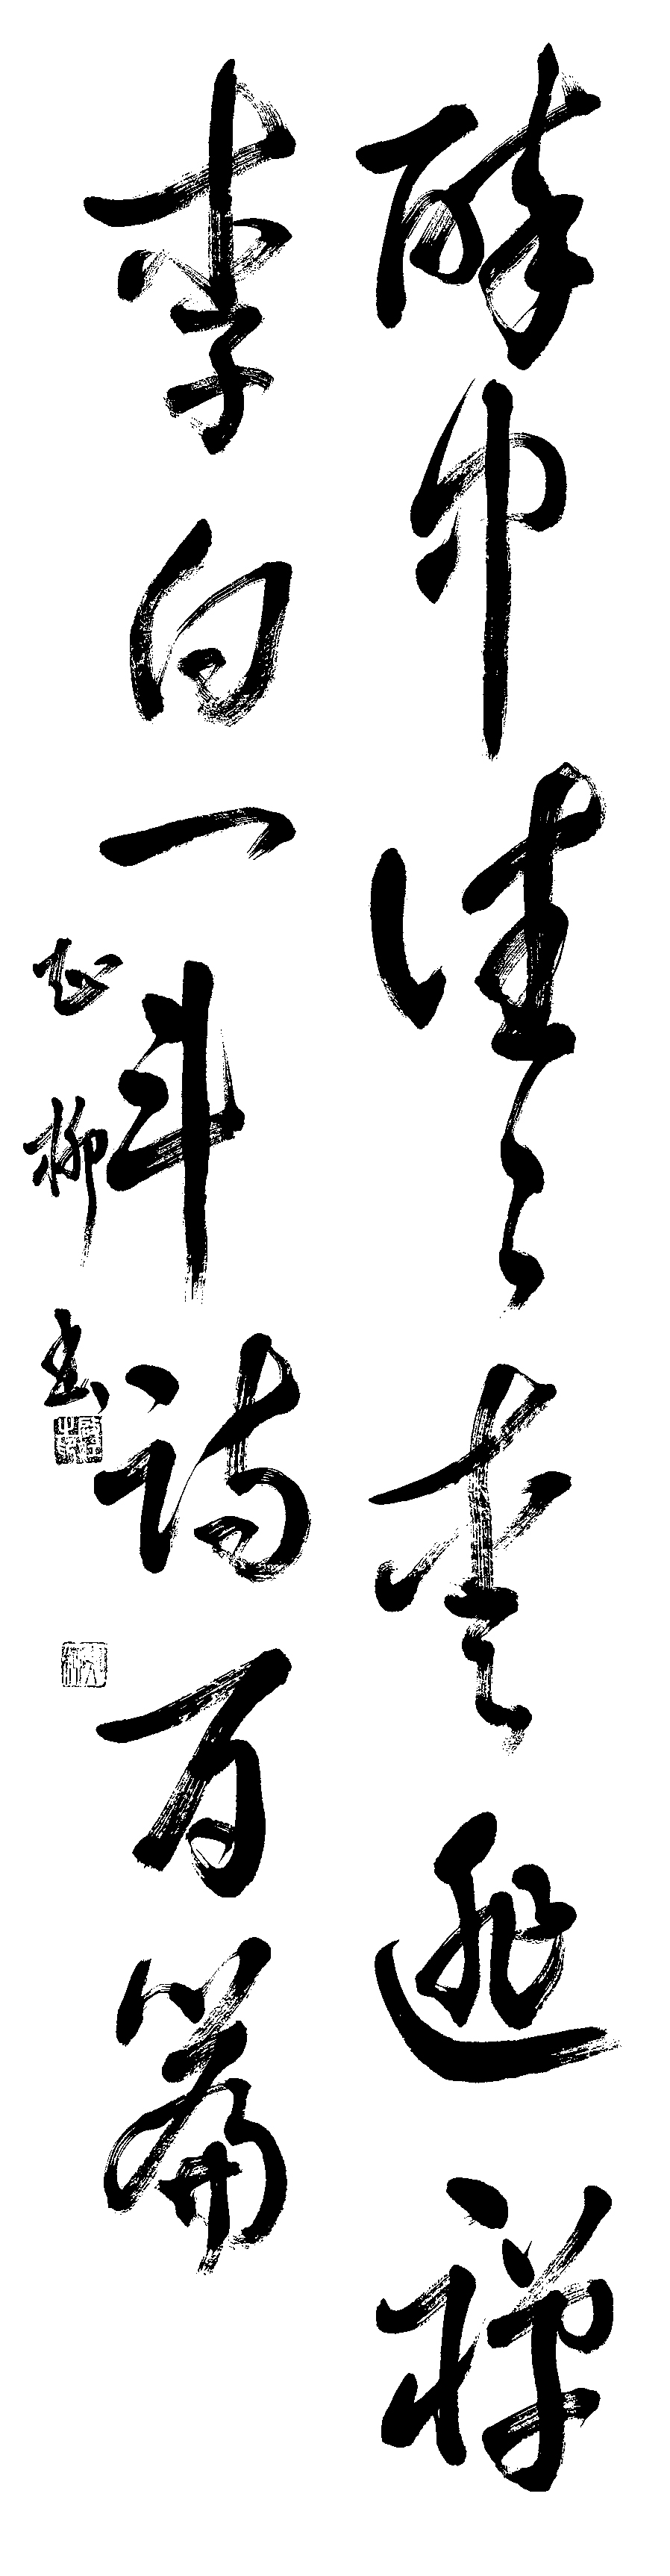 醉中往々愛逃禅
李白一斗詩百篇
柳書